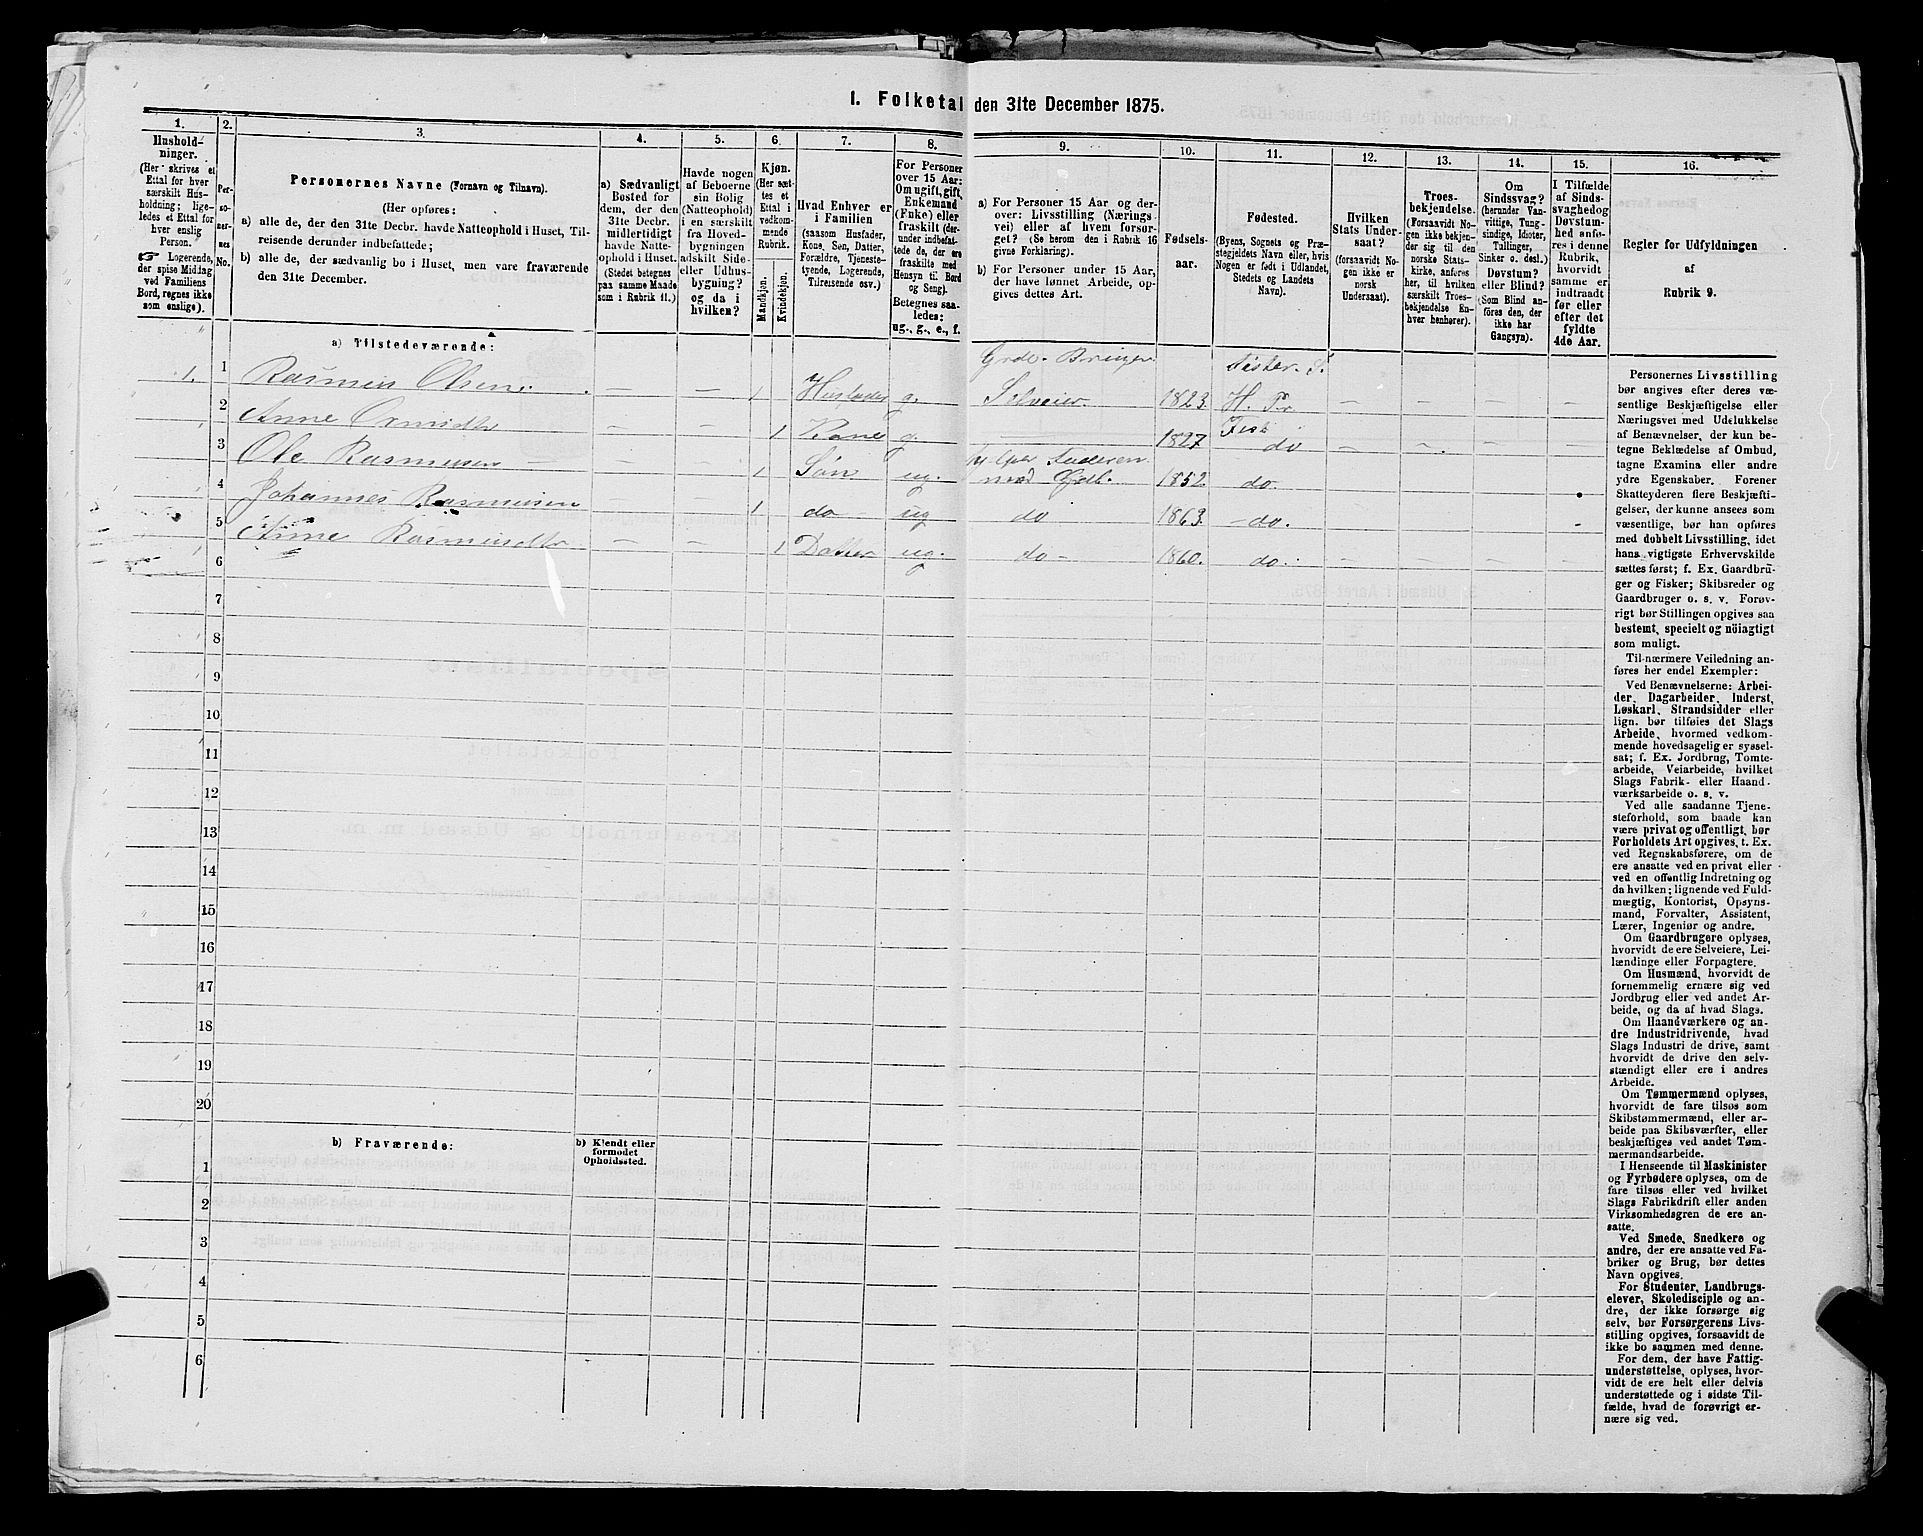 1. Folketal den 31te December 1875.
1.
Hushold-
ninger.
(Her skrives et
Ettal for hver
særskilt Hus-
holdning; lige-
ledes et Ettal for
hver enslig
Person.
☞ Logerende,
der spise Middag
ved Familiens
Bord, regnes ikke
som enslige).
2.
Per-
so-
ner-
nes
No.
3.
Personernes Navne (Fornavn og Tilnavn).
(Her opføres:
a) alle de, der den 31te Decbr. havde Natteophold i Huset, Til-
reisende derunder indbefattede;
b) alle de, der sædvanlig bo i Huset, men vare fraværende
den 31te December.
4.
a) Sædvanligt
Bosted for
dem, der den
31te Decbr.
midlertidigt
havde Natte-
ophold i Huset.
(Stedet betegnes
paa samme Maade
som i Rubrik 11.)
5.
Havde nogen
af Beboerne
sin Bolig
(Natteophold)
i en særskilt
fra Hoved-
bygningen
adskilt Side-
eller Udhus-
bygning?
og da i
hvilken?
6.
Kjøn.
(Her sæt-
tes et
Ettal i
vedkom-
mende
Rubrik.
Mandkjøn.
Kvindekjøn.
7.
Hvad Enhver er
i Familien
(saasom Husfader,
Kone, Søn, Datter,
Forældre, Tjeneste-
tyende, Logerende,
Tilreisende osv.)
8.
For Personer
over 15 Aar:
Om ugift, gift,
Enkemand
(Enke) eller
fraskilt (der-
under indbefat-
tede de, der ere
fraskilte med
Hensyn til Bord
og Seng).
Betegnes saa-
ledes:
ug., g., e., f.
9.
a) For Personer 15 Aar og der-
over: Livsstilling (Nærings-
vei) eller af hvem forsør-
get? (Se herom den i Rubrik 16
givne Forklaring).
b) For Personer under 15 Aar,
der have lønnet Arbeide, op-
gives dettes Art.
10.
Fødsels-
aar.
11.
Fødested.
(Byens, Sognets og Præ-
stegjeldets Navn eller, hvis
Nogen er født i Udlandet,
Stedets og Landets
Navn).
12.
Hvilken
Stats Under-
saat?
(forsaavidt No-
gen ikke er
norsk
Undersaat).
13.
Troes-
bekjendelse.
(Forsaavidt No-
gen ikke bekjen-
der sig til den
norske Stats-
kirke, anføres
her, til hvilken
særskilt Troes-
bekjendelse En-
hver henhører).
14.
Om
Sindssvag?
(herunder Van-
vittige, Tung-
sindige, Idioter,
Tullinger,
Sinker o. desl.)
Døvstum?
eller Blind?
(Som Blind an-
føres den, der
ikke har
Gangsyn).
15.
I Tilfælde
af Sinds-
svaghed og
Døvstum-
hed anfø-
res i denne
Rubrik,
hvorvidt
samme er
indtraadt
før eller
efter det
fyldte
4de Aar.
16.
Regler for Udfyldningen
af
Rubrik 9.
a) Tilstedeværende:
1. 1 Rasmus Olsen. — — 1 Husfader g. Selveier. 1823.
2 Anne — — 1 Kone g. 1827 do — —
3 Ole Rasmusen — — 1 Søn ug. 1852. do.
4 Johannes Rasmusen 1 do ug do 1863. do.
5 Anne Rasmusdtr — — 1 Datter ug. do 1860. do.
6
7
8
9
10
11
12
13
14
15
16
17
18
19
20
b) Fraværende:
b) Kjendt eller
formodet
Opholdssted.
1
2
3
4
5
6
Personernes Livsstilling
bør angives efter deres væ-
sentlige Beskjæftigelse eller
Næringsvei med Udelukkelse
af Benævnelser, der kun be-
tegne Beklædelse af Ombud,
tagne Examina eller andre
ydre Egenskaber. Forener
Skatteyderen flere Beskjæfti-
gelser, der kunne ansees som
væsentlige, bør han opføres
med dobbelt Livsstilling, idet
hans vigtigste Erhvervskilde
sættes først; f. Ex. Gaardbru-
ger og Fisker; Skibsreder og
Gaardbruger o. s. v. Forøv-
rigt bør Stillingen opgives saa
bestemt, specielt og nöiagtigt
som muligt.
Til nærmere Veiledning an-
føres her endel Exempler:
Ved Benævnelserne: Arbei-
der, Dagarbeider, Inderst,
Løskarl, Strandsidder eller
lign. bør tilføies det Slags
Arbeide, hvormed vedkom-
mende hovedsagelig er syssel-
sat; f. Ex. Jordbrug, Tomte-
arbeide, Veiarbeide, hvilket
Slags Fabrik- eller Haand-
værksarbeide o. s. v.
Ved alle saadanne Tjene-
steforhold, som baade kan
være privat og offentligt, bør
Forholdets Art opgives, t. Ex.
ved Regnskabsførere, om de
ere ansatte ved en privat eller
ved en offentlig Indretning og
da hvilken; lignende ved Fuld-
mægtig, Kontorist, Opsyns-
mand, Forvalter, Assistent,
Lærer, Ingeniør og andre.
Om Gaardbrugere oplyses,
hvorvidt de ere Selveiere, Lei-
lændinge eller Forpagtere.
Om Husmænd, hvorvidt de
fornemmelig ernære sig ved
Jordbrug eller ved andet Ar-
beide, og da af hvad Slags.
Om Haandværkere og an-
dre Industridrivende, hvad
Slags Industri de drive, samt
hvorvidt de drive den selv-
stændigt eller ere i andres
Arbeide.
Om Tømmermænd oplyses,
hvorvidt de fare tilsøs som
Skibstømmermænd, eller ar-
beide paa Skibsværfter, eller
beskjæftiges ved andet Tøm-
mermandsarbeide.
I Henseende til Maskinister
og Fyrbødere oplyses, om de
fare tilsøs eller ved hvilket
Slags Fabrikdrift eller anden
Virksomhedsgren de ere an-
satte.
Ved Smede, Snedkere og
andre, der ere ansatte ved Fa-
briker og Brug, bør dettes
Navn opgives.
For Studenter, Landbrugs-
elever, Skoledisciple og an-
dre, der ikke forsørge sig
selv, bør Forsørgerens Livs-
stilling opgives, forsaavidt de
ikke bo sammen med denne.
For dem, der have Fattig-
understøttelse, oplyses, hvor-
vidt de ere helt eller delvis
understøttede og i sidste Til-
fælde, hvad de forøvrigt er-
nære sig ved.